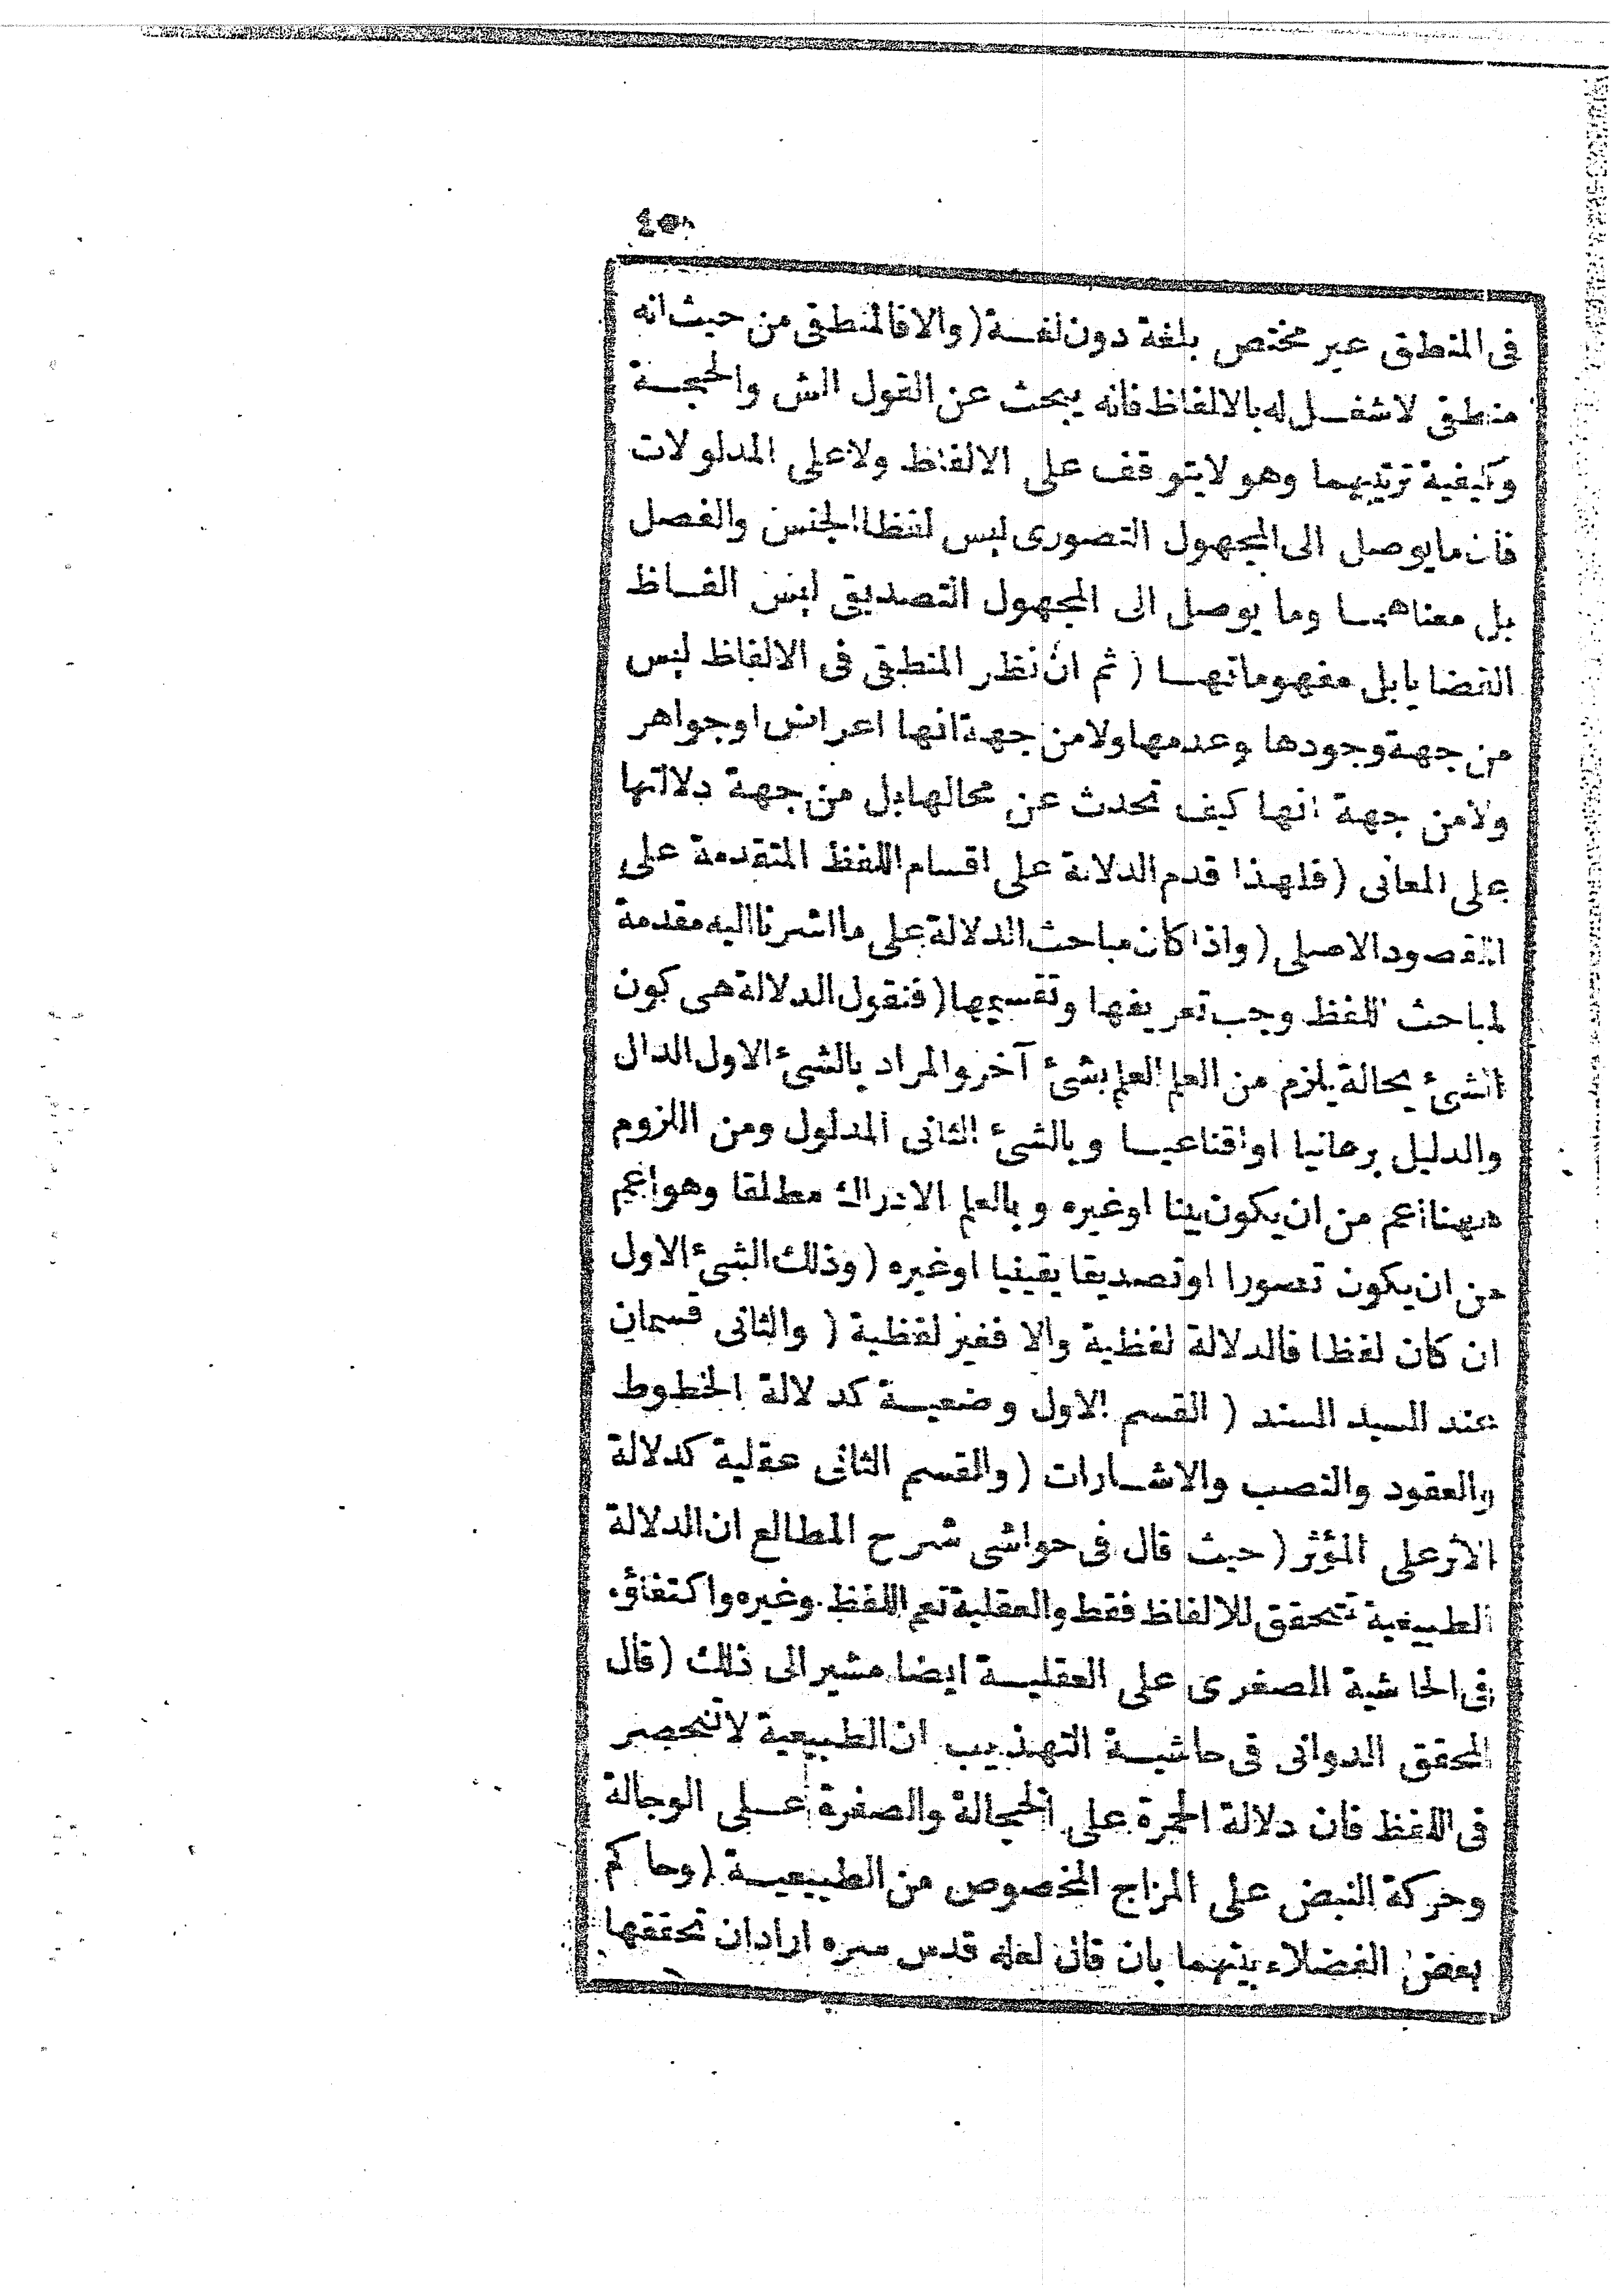 فى المنطق غير مختص بلغة دون لغــة (والا فالمنطقى من حيث انه
منطقى لا شغــل له بالالفاظ فانه يبحث عن القول الش والحجــة
وكيفية ترتيبهما وهو لا يتوقف على الالفاظ ولا على المدلولات
فان ما يوصل الى المجهول التصورى ليس لفظا الجنس والفصل
بل معناهمــا وما يوصل الى المجهول التصديقى ليس الفــاظ
القضايا بل مفهوماتهــا (ثم ان نظر المنطقى فى الالفاظ ليس
من جهة وجودها وعدمها ولا من جهة انها اعراض او جواهر
ولا من جهة انها كيف تحدث عن محالها بل من جهة دلالتها
على المعانى (فلهذا قدم الدلالة على اقسام اللفظ المتقدمة على
المقصود الاصلى (واذا كان مباحث الدلالة على ما اشرنا اليه مقدمة
لمباحث اللفظ وجب تعريفها وتقسيمها (فنقول الدلالة هى كون
الشئ بحالة يلزم من العلم العلم بشئ آخر والمراد بالشئ الاول الدال
والدليل برهانيا او اقناعيــا وبالشئ الثانى المدلول ومن اللزوم
ههنا اعم من ان يكون بينا او غيره وبالعلم الادراك مطلقا وهو اعم
من ان يكون تصورا او تصديقا يقينيا او غيره (وذلك الشئ الاول
ان كان لفظا فالدلالة لفظية والا فغير لفظية (والثانى قسمان
عند السيد السند (القسم الاول وضعيــة كدلالة الخطوط
والعقود والنصب والاشــارات (والقسم الثانى عقلية كدلالة
الاثر على المؤثر (حيث قال فى حواشى شرح المطالع ان الدلالة
الطبيعية تتحقق للالفاظ فقط والعقلية تعم اللفظ وغيره واكتفاؤه
فى الحاشية الصغرى على العقليــة ايضا مشير الى ذلك (قال
المحقق الدوانى فى حاشيــة التهذيب ان الطبيعية لا تنحصر
فى اللفظ فان دلالة الحمرة على الخجالة والصفرة عــلى الوجالة
وحركة النبض على المزاج المخصوص من الطبيعيــة (وحاكم
بعض الفضلاء بينهما بان قال لعله قدس سره اراد ان تحققها